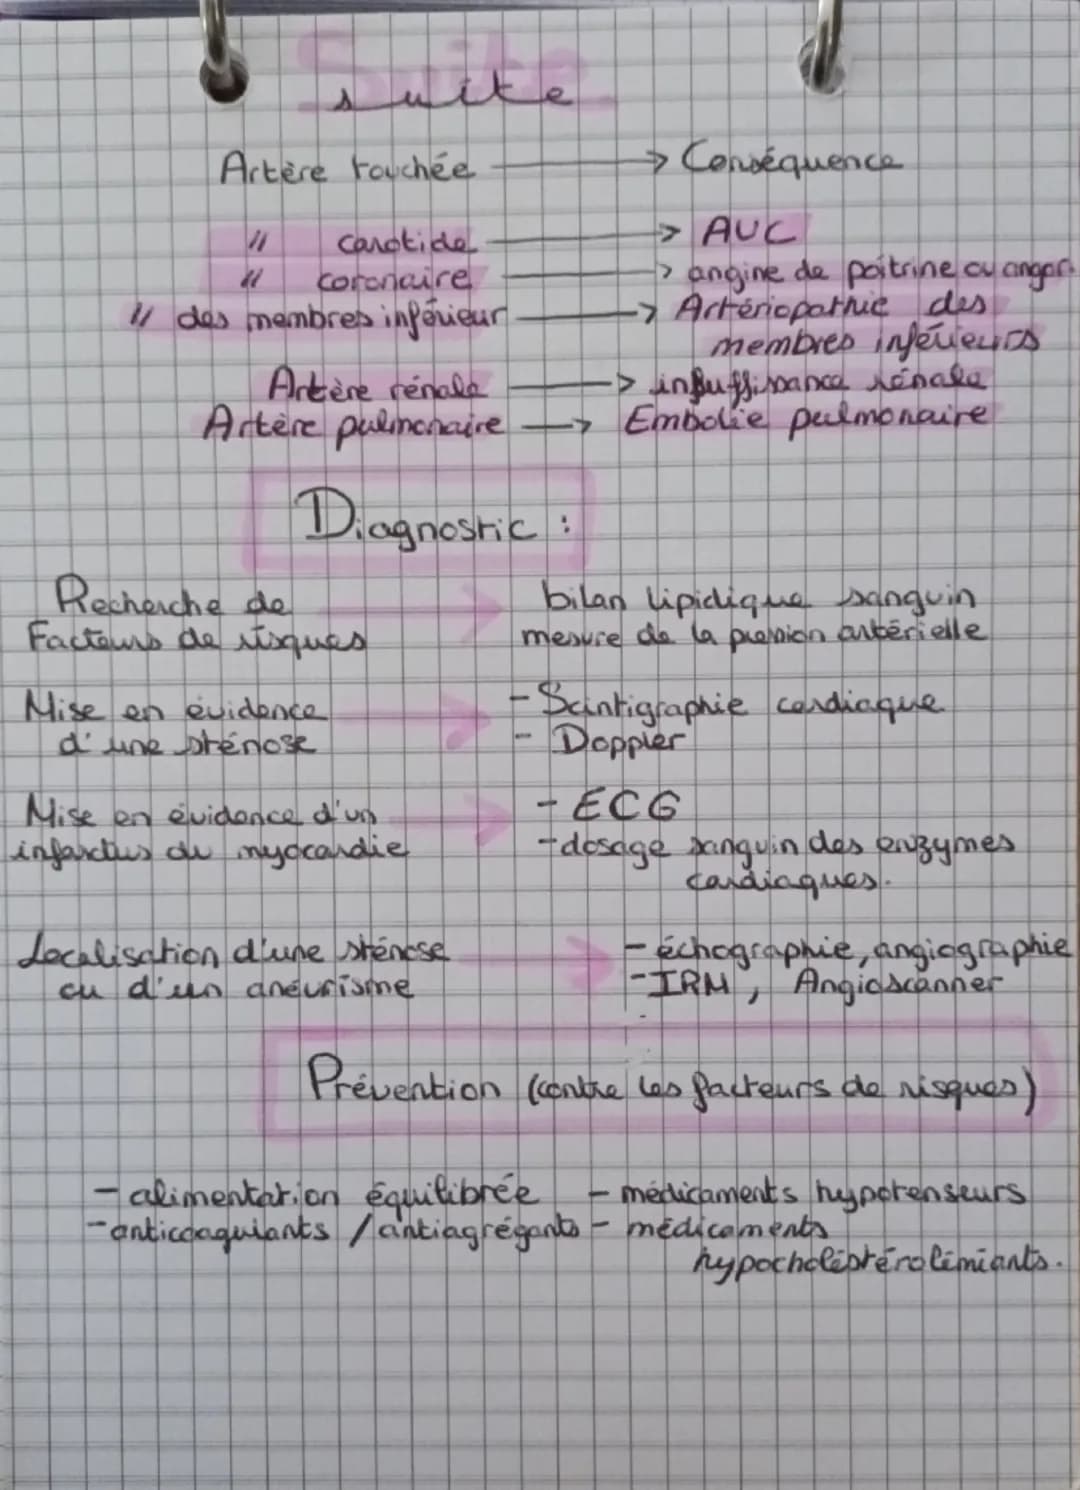 Suite
Artère touchée → Conséquence
// carotide → AUC
// coronaire → angine de poitrine ou angor.
// des membres inférieur → Artériopathie des
membres inférieurs
Artère rénale → insuffisance rénale
Artère pulmonaire → Embolie pulmonaire
Diagnostic :
Recherche de → bilan lipidique sanguin
Facteurs de risques mesure de la pression artérielle
Mise en évidence → - Scintigraphie cardiaque
d'une sténose - Doppler
Mise en évidence d'un → - ECG
infarctus du myocardie - dosage sanguin des enzymes
cardiaques.
Localisation d'une sténose → - échographie, angiographie
ou d'un anévrisme - IRM, Angioscanner
Prévention (contre les facteurs de risques)
- alimentation équilibrée - médicaments hypotenseurs
- anticoagulants / antiagrégants - médicaments
hypocholéstérolémiants.